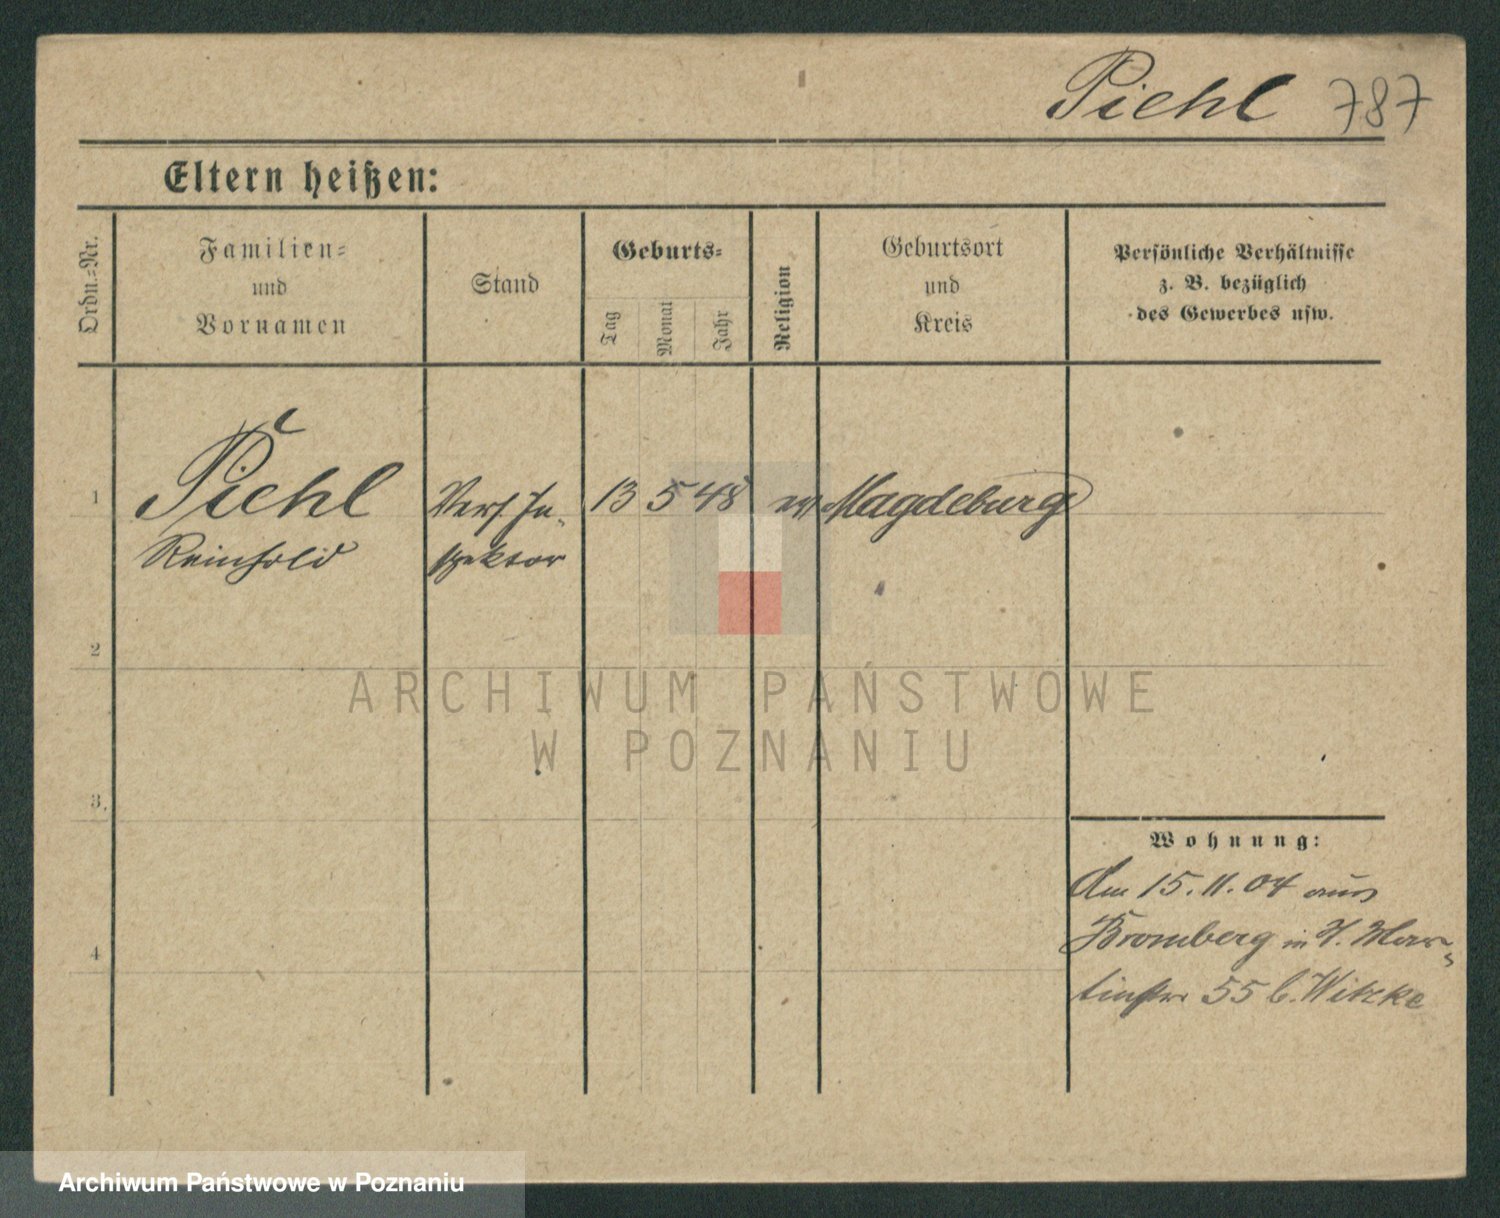 Piehl 787
Eltern heißen:
Ordn.=Nr.
Familien=
und
Vornamen
Stand
Geburts=
Tag
Monat
Jahr
Religion
Geburtsort
und
Kreis
Persönliche Verhältnisse
z. B. bezüglich
des Gewerbes usw.
1 Piehl Vers. In- 13 5 48 ev Magdeburg
Reinhold spektor
2
3.
4
Wohnung:
Am 15.11.04 aus
Bromberg in Mar-
tinstr 55 b. Witzke
ARCHIWUM PAŃSTWOWE
W POZNANIU
Archiwum Państwowe w Poznaniu